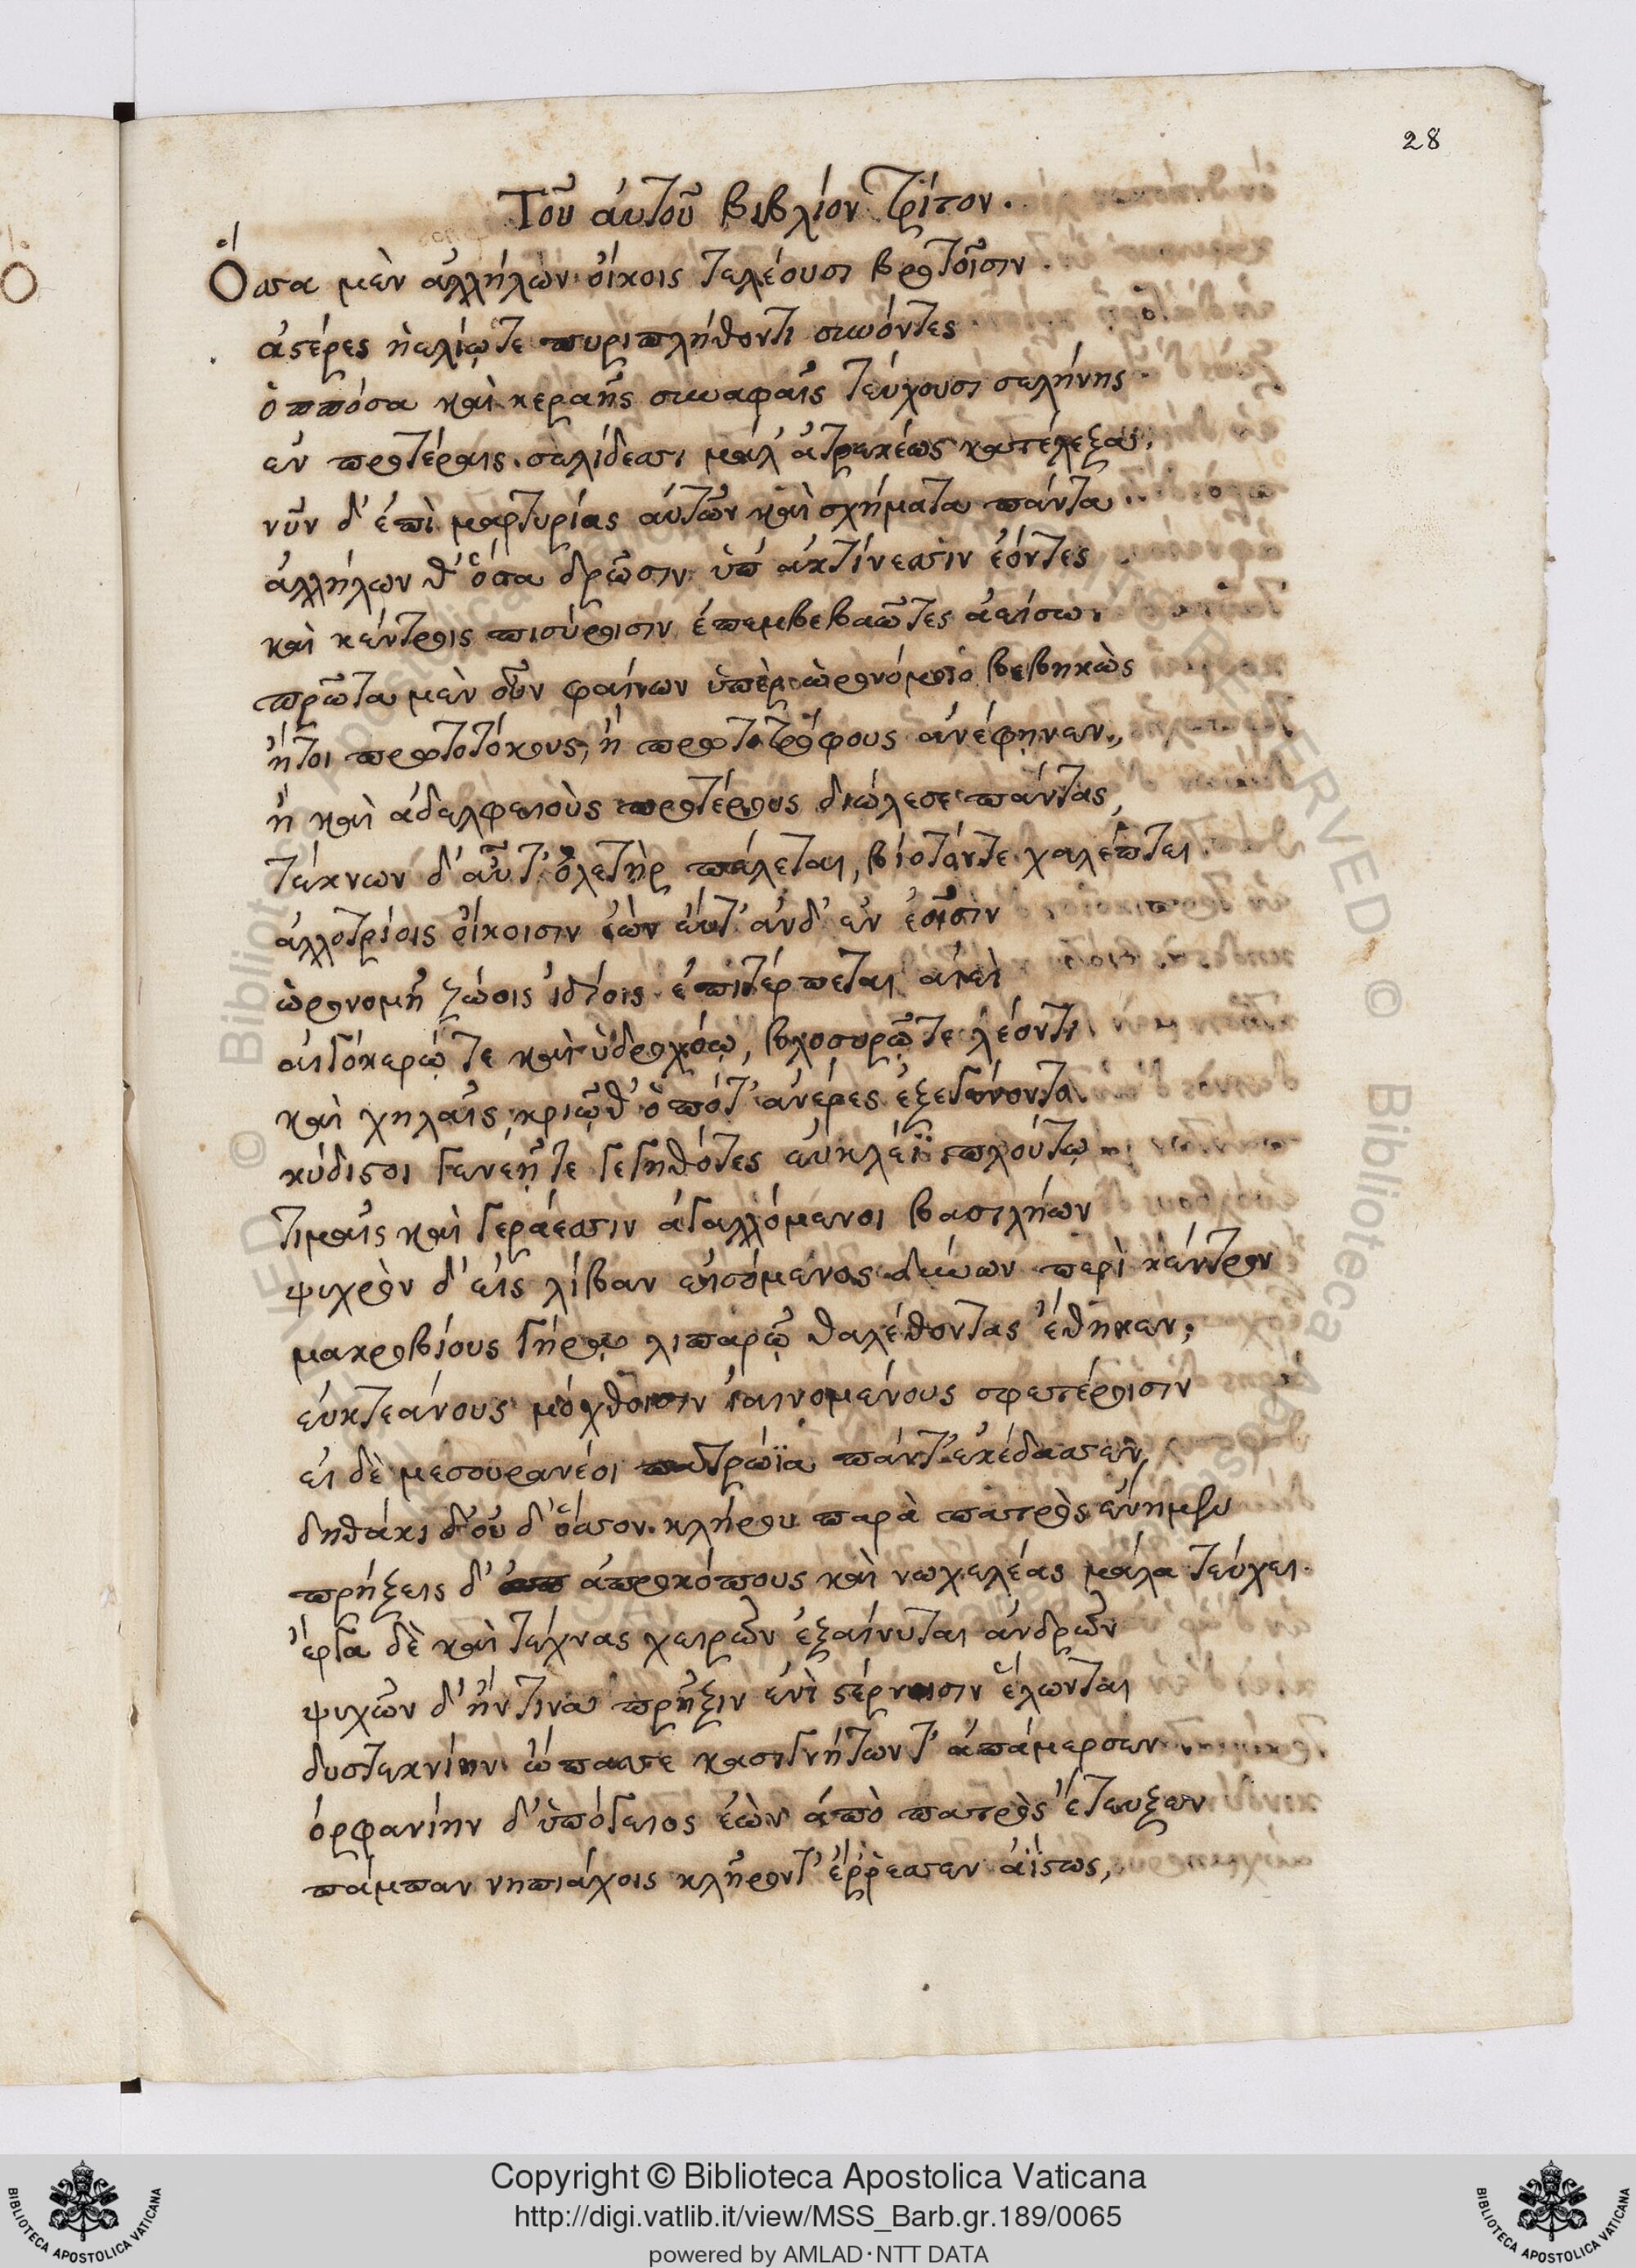 28
Τοῦ ἀυτοῦ βιβλίον τρίτον.
Ὅσσα μὲν ἀλλήλων οἴκοις τελέουσι βροτοῖσιν.
ἀστέρες ἠελίῳτε πυριπλήθοντι συνόντες
ὁππόσα καὶ κεραῆς συναφαῖς τεύχουσι σελήνης
ἐν προτέραις σελίδεσσι μάλ' ἀτρεκέως κατέλεξα,
νῦν δ' ἐπὶ μαρτυρίας αὐτῶν καὶ σχήματα πάντα
ἀλλήλων θ' ὅσα δρῶσιν ὑπ' ἀκτίνεσσιν ἐόντες
καὶ κέντροις πισύροισιν ἐπεμβεβαῶτες ἀείσω.
πρῶτα μὲν οὖν φαίνων ὑπὲρ ὡρονόμοιο βεβηκὼς
ἤτοι πρωτοτόκους, ἢ πρωτοτρόφους ἀνέφηνεν,,
ἢ καὶ ἀδελφειοὺς προτέρους διώλεσε πάντας,
τέκνων δ' αὖτ' ὀλετὴρ πέλεται, βίοτόντε χαλέπτει
ἀλλοτρίοις οἴκοισιν ἐὼν εὖτ' ἂν δ' ἐν ἑοῖσιν
ὡρονομῇ ζώοις ἰδίοις ἐπιτέρπεται αἰεὶ
αἰγόκερῴ τε καὶ ὑδροχόῳ, βλοσυρῷ τε λέοντι
καὶ χηλαῖς, κριῷθ' ὁπότ' ἀνέρες ἐξεγένοντο
κύδιστοι γενεῇ τε γεγηθότες εὐκλέϊ πλούτῳ
τιμαῖς καὶ γεράεσσιν ἀγαλλόμενοι βασιλήων
ψυχρὸν δ' εἰς λίβαν εἰσόμενος δύνων περὶ κέντρον
μακροβίους γήρᾳ λιπαρῷ θαλέθοντας ἔθηκεν,
εὐκτεάνους μόχθοισιν ἰαινομένους σφετέροισιν
εἰ δὲ μεσουρανέοι πατρώϊα πάντ' ἐκέδασσεν,
δηθάκι δ' οὐδ' ὅσσον κλήρου παρὰ πατρὸς
πρήξεις δ' ἀπροκόπους καὶ νωχελέας μάλα τεύχει.
ἔργα δὲ καὶ τέχνας χειρῶν ἐξαίνυται ἀνδρῶν
ψυχῶν δ' ἥντινα πρῆξιν ἐνὶ στέρνοισιν ἕλωνται
δυστεκνίην ὤπασσε κασιγνήτων τ' ἀπάμερσεν
ὀρφανίην δ' ὑπόγειος ἐὼν ἀπὸ πατρὸς ἔτευξεν
πάμπαν νηπιάχοις κλῆρόντ' ἔῤῥευσεν ἀΐστως,
Copyright © Biblioteca Apostolica Vaticana
http://digi.vatlib.it/view/MSS_Barb.gr.189/0065
powered by AMLAD·NTT DATA
BIBLIOTECA APOSTOLICA VATICANA
BIBLIOTECA APOSTOLICA VATICANA